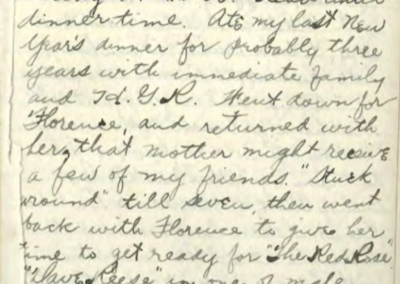 dinner time. Ate my last New
Year's dinner for probably three
years with immediate family
and H. G. R. Went down for
Florence, and returned with
her, that mother might receive
a few of my friends. "Stuck
around" till seven, then went
back with Florence to give her
time to get ready for "The Red Rose"
"Dave Reese" in one of male